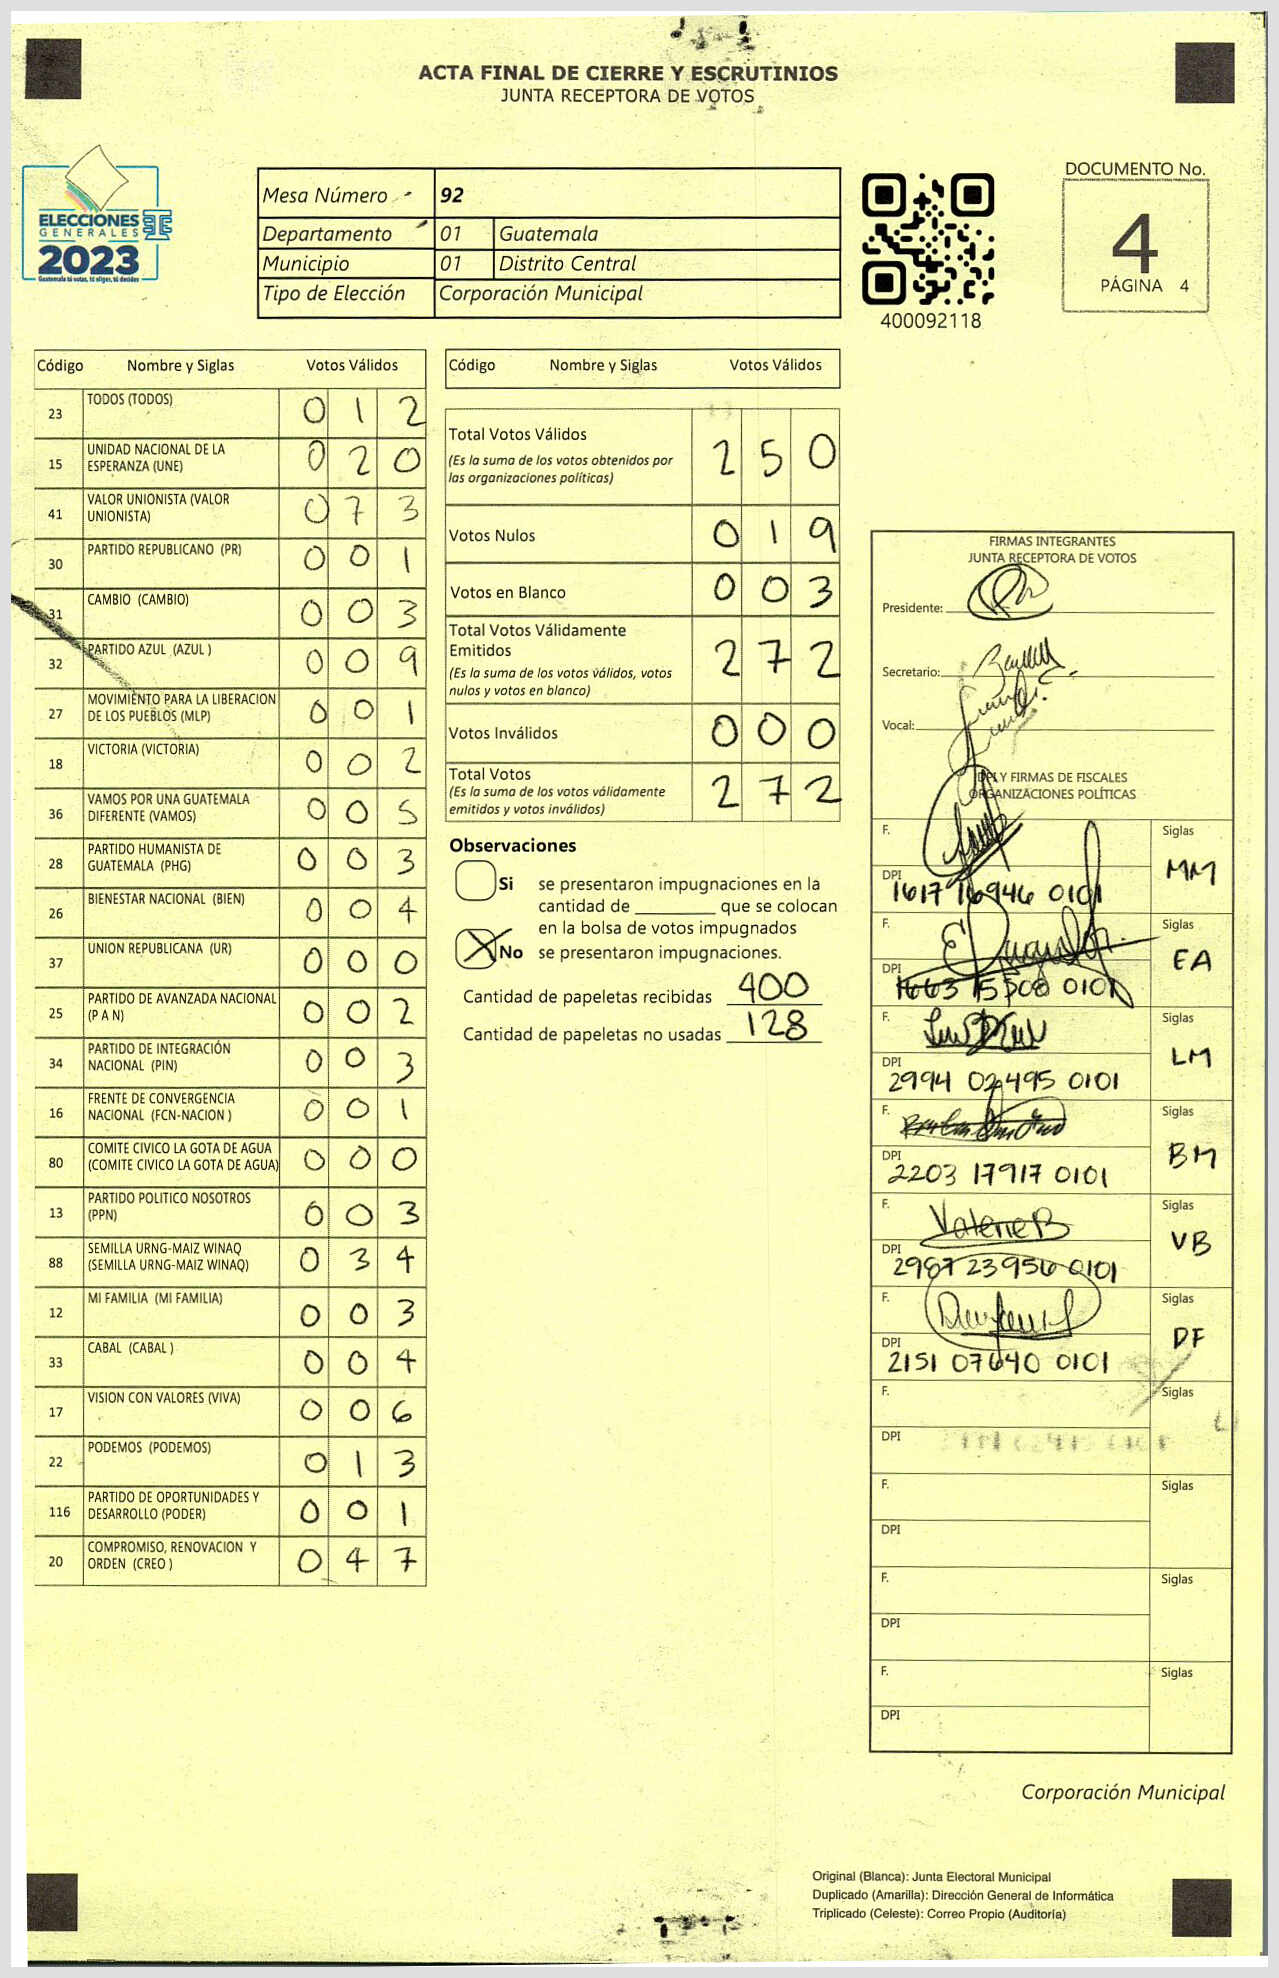 ACTA FINAL DE CIERRE Y ESCRUTINIOS
JUNTA RECEPTORA DE VOTOS
ELECCIONES
GENERALES
2023
Guatemala tú votas, tú eliges, tú decides
Mesa Número 92
Departamento 01 Guatemala
Municipio 01 Distrito Central
Tipo de Elección Corporación Municipal
400092118
DOCUMENTO No.
4
PÁGINA 4
Código Nombre y Siglas Votos Válidos
23 TODOS (TODOS) 0 1 2
15 UNIDAD NACIONAL DE LA
ESPERANZA (UNE) 0 2 0
41 VALOR UNIONISTA (VALOR
UNIONISTA) 0 7 3
30 PARTIDO REPUBLICANO (PR) 0 0 1
31 CAMBIO (CAMBIO) 0 0 3
32 PARTIDO AZUL (AZUL ) 0 0 9
27 MOVIMIENTO PARA LA LIBERACION
DE LOS PUEBLOS (MLP) 0 0 1
18 VICTORIA (VICTORIA) 0 0 2
36 VAMOS POR UNA GUATEMALA
DIFERENTE (VAMOS) 0 0 5
28 PARTIDO HUMANISTA DE
GUATEMALA (PHG) 0 0 3
26 BIENESTAR NACIONAL (BIEN) 0 0 4
37 UNION REPUBLICANA (UR) 0 0 0
25 PARTIDO DE AVANZADA NACIONAL
(P A N) 0 0 2
34 PARTIDO DE INTEGRACIÓN
NACIONAL (PIN) 0 0 3
16 FRENTE DE CONVERGENCIA
NACIONAL (FCN-NACION ) 0 0 1
80 COMITE CIVICO LA GOTA DE AGUA
(COMITE CIVICO LA GOTA DE AGUA) 0 0 0
13 PARTIDO POLITICO NOSOTROS
(PPN) 0 0 3
88 SEMILLA URNG-MAIZ WINAQ
(SEMILLA URNG-MAIZ WINAQ) 0 3 4
12 MI FAMILIA (MI FAMILIA) 0 0 3
33 CABAL (CABAL ) 0 0 4
17 VISION CON VALORES (VIVA) 0 0 6
22 PODEMOS (PODEMOS) 0 1 3
116 PARTIDO DE OPORTUNIDADES Y
DESARROLLO (PODER) 0 0 1
20 COMPROMISO, RENOVACION Y
ORDEN (CREO ) 0 4 7
Código Nombre y Siglas Votos Válidos
Total Votos Válidos 2 5 0
(Es la suma de los votos obtenidos por
las organizaciones políticas)
Votos Nulos 0 1 9
Votos en Blanco 0 0 3
Total Votos Válidamente
Emitidos 2 7 2
(Es la suma de los votos válidos, votos
nulos y votos en blanco)
Votos Inválidos 0 0 0
Total Votos 2 7 2
(Es la suma de los votos válidamente
emitidos y votos inválidos)
Observaciones
Si se presentaron impugnaciones en la
cantidad de ________ que se colocan
en la bolsa de votos impugnados
No se presentaron impugnaciones.
Cantidad de papeletas recibidas 400
Cantidad de papeletas no usadas 128
FIRMAS INTEGRANTES
JUNTA RECEPTORA DE VOTOS
Presidente:
Secretario:
Vocal:
DPI Y FIRMAS DE FISCALES
ORGANIZACIONES POLÍTICAS
F. Siglas
MM
DPI 1617 16946 0101
F. Siglas
EA
DPI 1663 15508 0101
F. Siglas
LM
DPI 2994 02495 0101
F. Siglas
BM
DPI 2203 17917 0101
F. Valerie B Siglas
VB
DPI 2987 23956 0101
F. Siglas
DF
DPI 2151 07640 0101
F. Siglas
DPI
F. Siglas
DPI
F. Siglas
DPI
F. Siglas
DPI
Corporación Municipal
Original (Blanca): Junta Electoral Municipal
Duplicado (Amarilla): Dirección General de Informática
Triplicado (Celeste): Correo Propio (Auditoría)